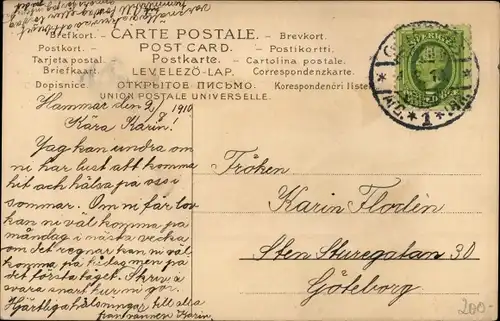 Brefkort.
CARTE POSTALE.
Brevkort
Postkort.
POST CARD.
Postikortti.
Tarjeta postal
Postkarte.
Cartolina postale.
Briefkaart.
LEVELEZŐ-LAP.
Correspondenzkarte.
Dopisnice.
ОТКРЫТОЕ ПИСЬМО.
Korespondenční lístek
UNION POSTALE UNIVERSELLE.
SVERIGE
Hammar den 2/8 1910
Kära Karin!
Jag kan undra om
ni har lust att komma
hit och hälsa på oss i
sommar. Om ni får lov
kan ni väl komma på
måndag i nästa vecka
om det regnar kan ni väl
komma på tisdag men på
det första tåget. Skriv
svara snart hur ni gör.
Hjärtliga hälsningar till alla
från vännen Karin.
Fröken
Karin Flodén
Sten Sturegatan 30
Göteborg
200-